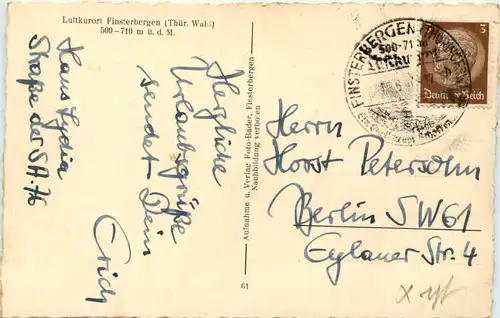 Luftkurort Finsterbergen (Thür. Wald)
500-710 m ü. d. M.
Herzliche
Urlaubsgrüße
sendet Dein
Erich
Haus Lydia
Straße der SA. 76
Aufnahme u. Verlag Foto-Rader, Finsterbergen
Nachbildung verboten
61
FINSTERBERGEN
500-71
3
Deutsches Reich
Herrn
Horst Petersohn
Berlin SW61
Eylauer Str. 4